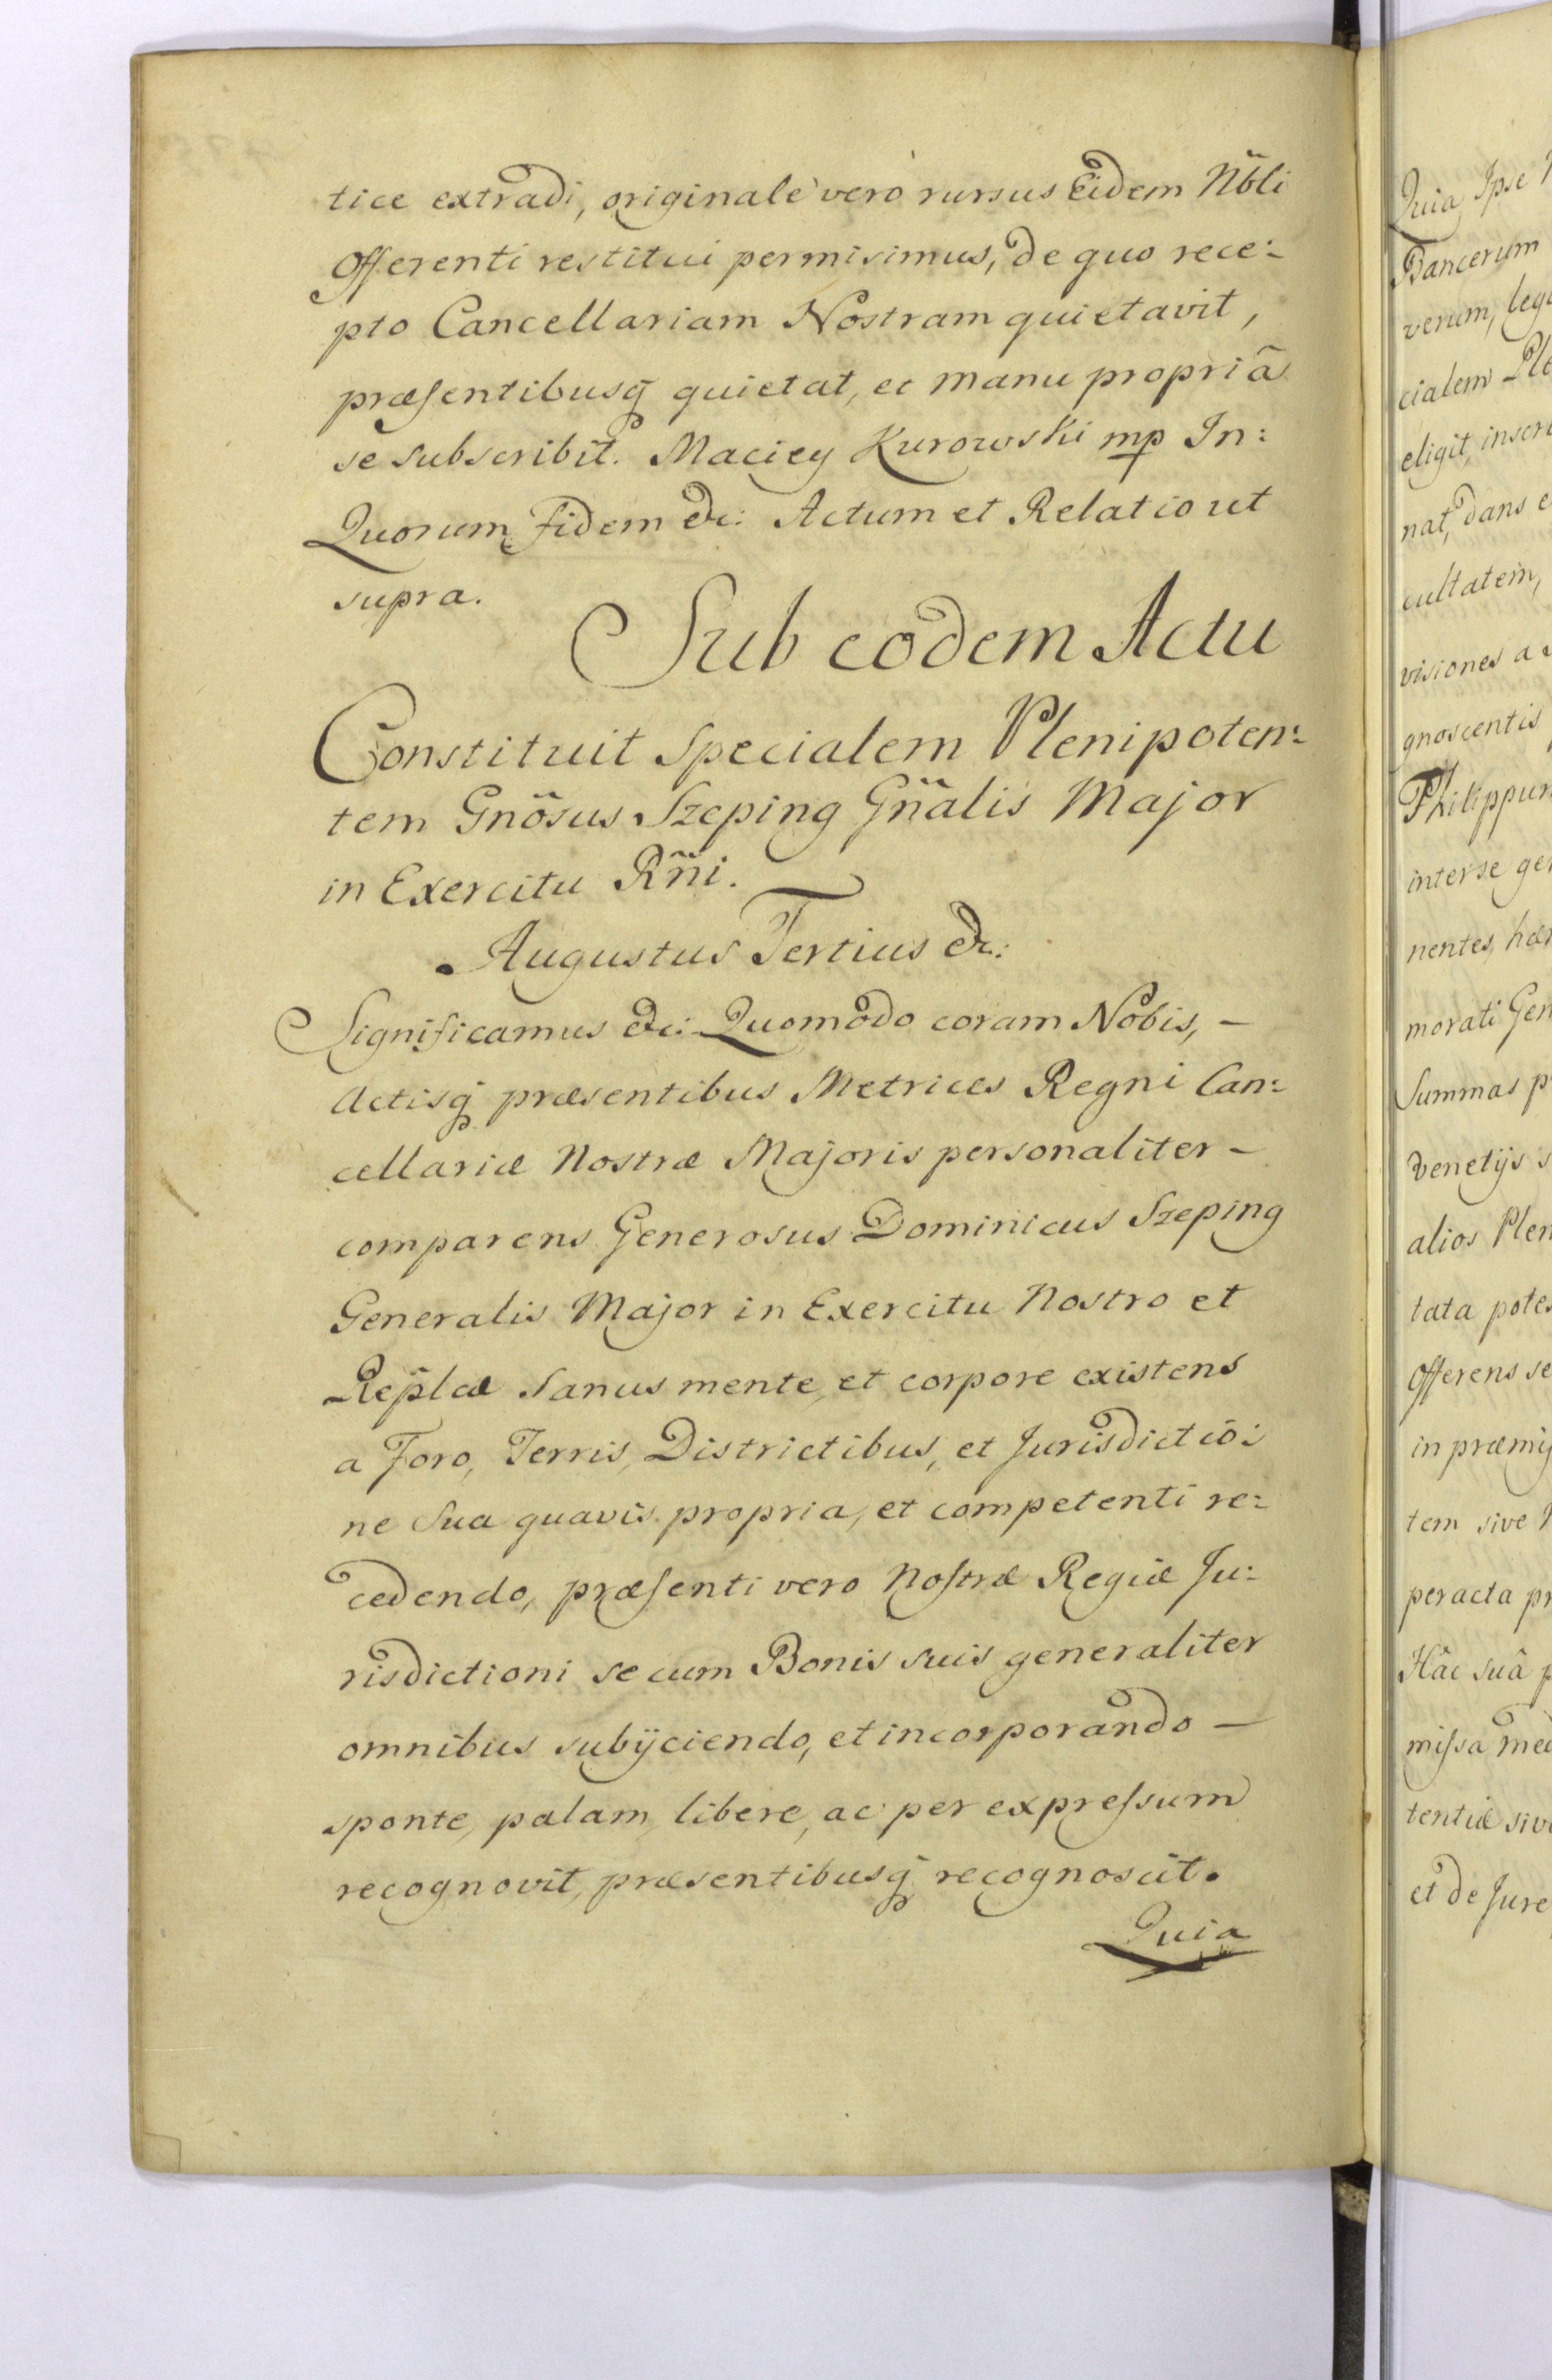 tice extradi, originale vero rursus Eidem Nb̃li
Offerenti restitui permisimus, de quo rece:
pto Cancellariam Nostram quietavit,
præsentibusq̃ quietat, et manu propriã
se subscribit. Maciey Kurowski mp In:
Quorum Fidem &c: Actum et Relatio ut
supra.
Sub eodem Actu
Constituit Specialem Plenipoten:
tem Gnõsus Szeping Gñalis Major
in Exercitu Rñi.
Augustus Tertius &c:
Significamus &c: Quomodo coram Nobis, –
Actisq̃ præsentibus Metrices Regni Can:
cellariæ Nostræ Majoris personaliter –
comparens Generosus Dominicus Szeping
Generalis Major in Exercitu Nostro et
Reip̃lcæ Sanus mente, et corpore existens
a Foro, Terris, Districtibus, et Jurisdictio:
ne Sua quavis propria, et competenti re:
cedendo, præsenti vero Nostræ Regiæ Ju:
risdictioni se cum Bonis suis generaliter
omnibus subijciendo, et incorporando –
sponte, palam, libere, ac per expressum
recognovit, præsentibusq̃ recognoscit.
Quia
Quia Ipse
Dancerum
verum, leg
cialem Ple
eligit, inscri
nat, dans e
cultatem,
visiones a
gnoscentis
Philippum
inter se ge
nentes, hær
morati Gen
Summas p
Venetijs s
alios Plen
tata potes
Offerens se
in præmij
tem sive
peracta pr
Hâc suâ p
missa med
tentiæ siv
et de Jure